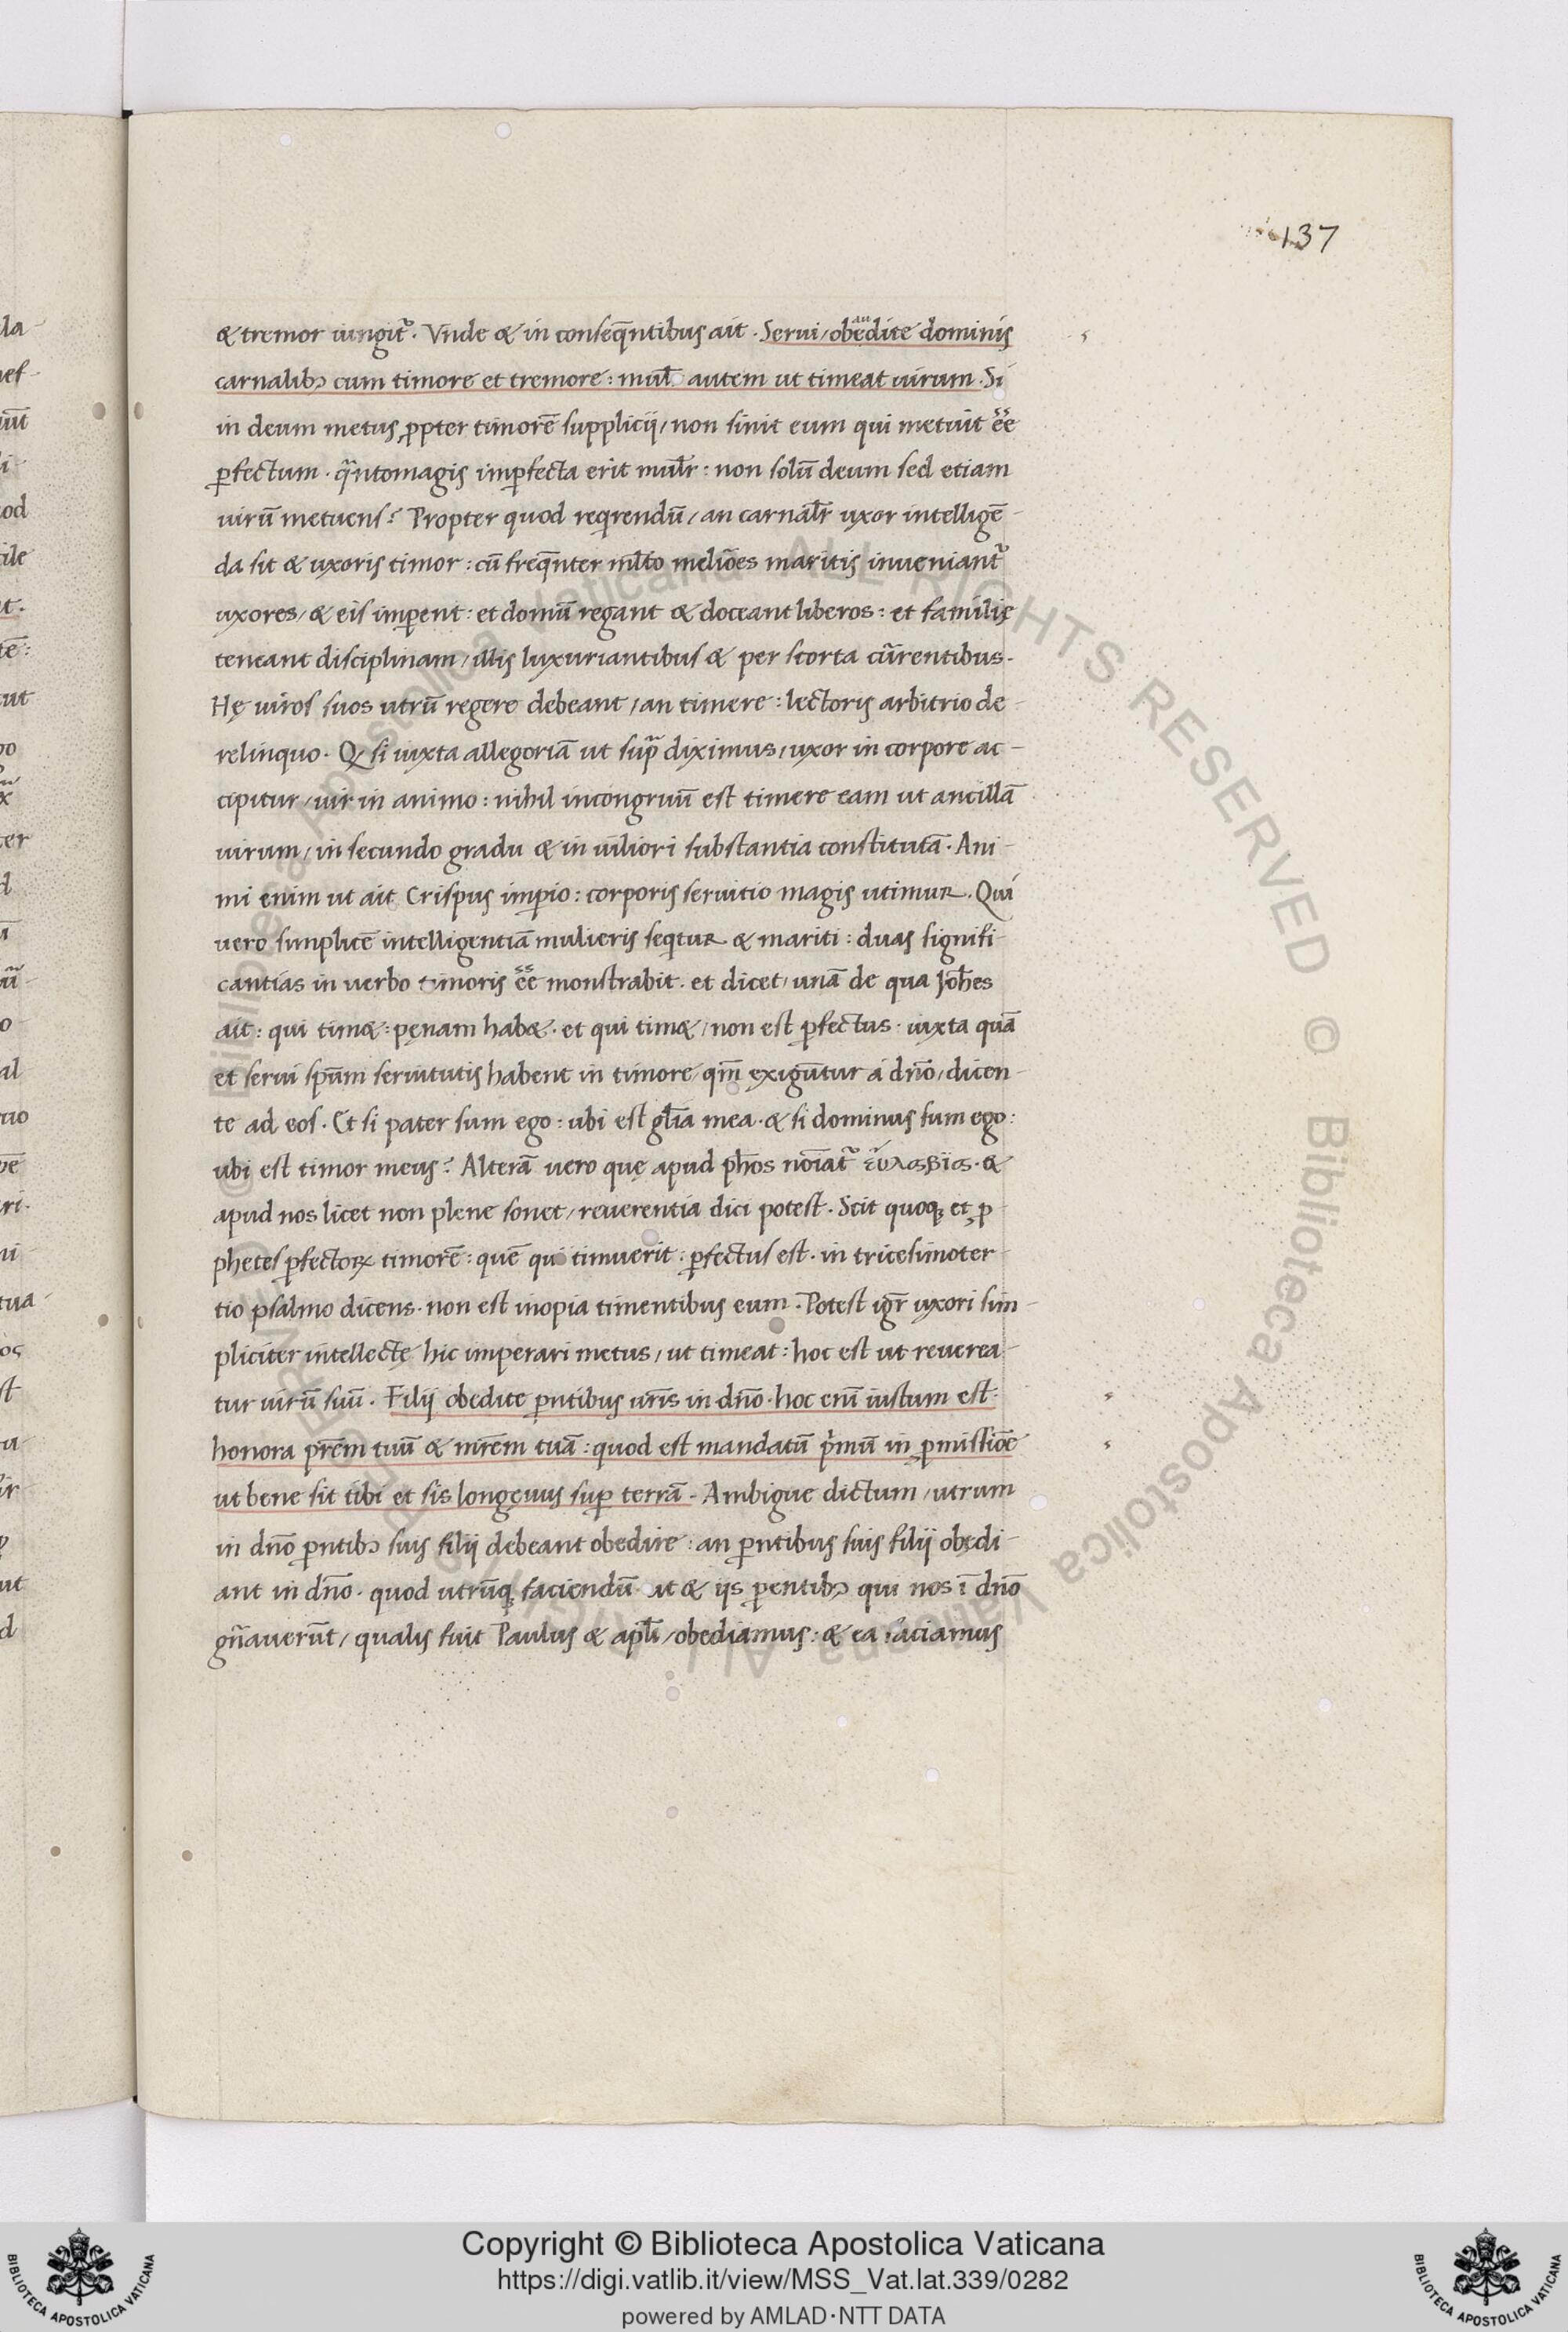 137
& tremor iungit᷑. Vnde & in conseq̄ntibus ait. Serui/obedite dominis
carnalibꝫ cum timore et tremore: mul̄ autem ut timeat uirum. Si
in deum metus ꝓpter timorē supplicij/non sinit eum qui metuit ēe
ꝑfectum. qᷓntomagis imꝑfecta erit mul̄r: non solū deum sed etiam
uirū metuens? Propter quod reqͥrendū/an carnal̄r uxor intelligē-
da sit & uxoris timor: cū freq̄nter ml̄to meliōes maritis inueniant᷑
uxores/& eis imꝑent: et domū regant & doceant liberos: et familię
teneant disciplinam/illis luxuriantibus & per scorta cūrentibus.
Hę uiros suos utrū regere debeant/an timere: lectoris arbitrio de-
relinquo. Qꝫ si iuxta allegoriā ut supᷓ diximus/uxor in corpore ac-
cipitur/uir in animo: nihil incongruū est timere eam ut ancillā
uirum/in secundo gradu & in uiliori substantia constitutā. Ani-
mi enim ut ait Crispus imꝑio: corporis seruitio magis utimur. Qui
uero simplicē intelligentiā mulieris seqͥtur & mariti: duas signifi-
cantias in uerbo timoris ēe monstrabit. et dicet/unā de qua Joh̄es
ait: qui tim&: pęnam hab&. et qui tim&/non est ꝑfectus. iuxta quā
et serui sp̄um seruitutis habent in timore/qm̄ exigūtur á dn̄o/dicen-
te ad eos. Et si pater sum ego: ubi est gl̄ia mea. & si dominus sum ego:
ubi est timor meus? Alterā uero quę apud ph̄os noīat᷑ ἐυλαβία. &
apud nos licet non plene sonet/reuerentia dici potest. Scit quoqꝫ et ꝓ-
phetes ꝑfectoꝝ timorē: quē qui timuerit: ꝑfectus est. in tricesimoter-
tio psalmo dicens. non est inopia timentibus eum. Potest igr̄ uxori sim-
pliciter intellectę hic imperari metus/ut timeat: hoc est ut reuerea-
tur uirū suū. Filij obedite ꝑntibus ur̄is in dn̄o. hoc enī iustum est:
honora pr̄em tuū & mr̄em tuā: quod est mandatū pͥmū in ꝓmissiōe
ut bene sit tibi et sis longęuus suꝑ terrā. Ambigue dictum/utrum
in dn̄o ꝑntibꝫ suis filij debeant obedire: an ꝑntibus suis filij obędi-
ant in dn̄o. quod utrūqꝫ faciendū. ut & ijs ꝑentibꝫ qui nos ī dn̄o
gn̄auerūt/qualis fuit Paulus & apl̄i/obediamus: & ea faciamus
Copyright © Biblioteca Apostolica Vaticana
https://digi.vatlib.it/view/MSS_Vat.lat.339/0282
powered by AMLAD·NTT DATA